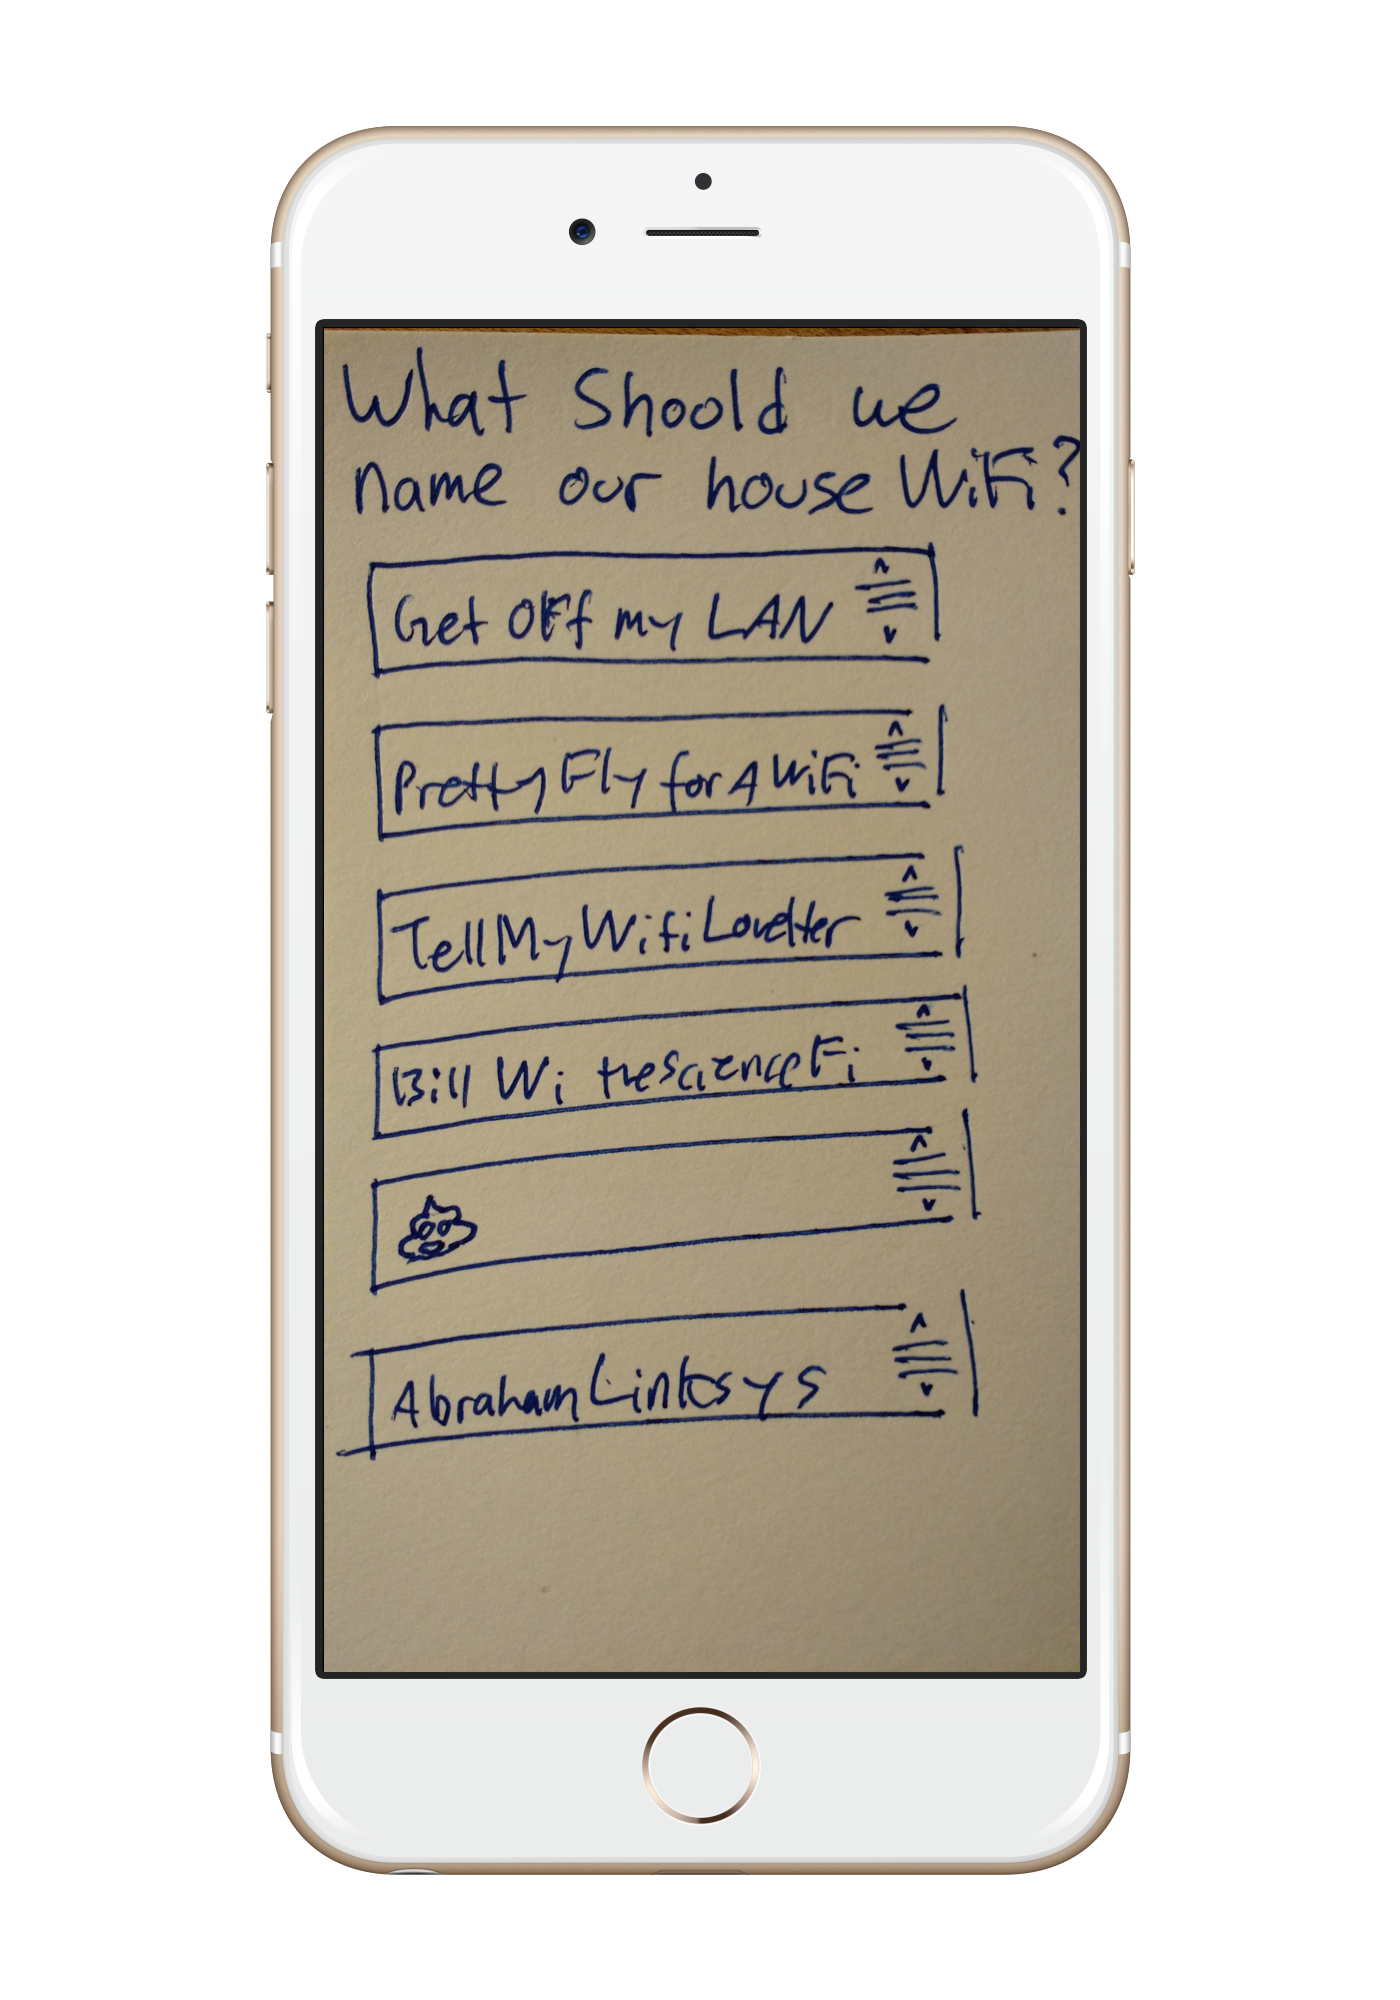 What Shoold we
name our house WiFi?
Get Off my LAN
Pretty Fly for A WiFi
Tell My Wifi Love Her
Bill Wi the Science Fi
Abraham Linksys